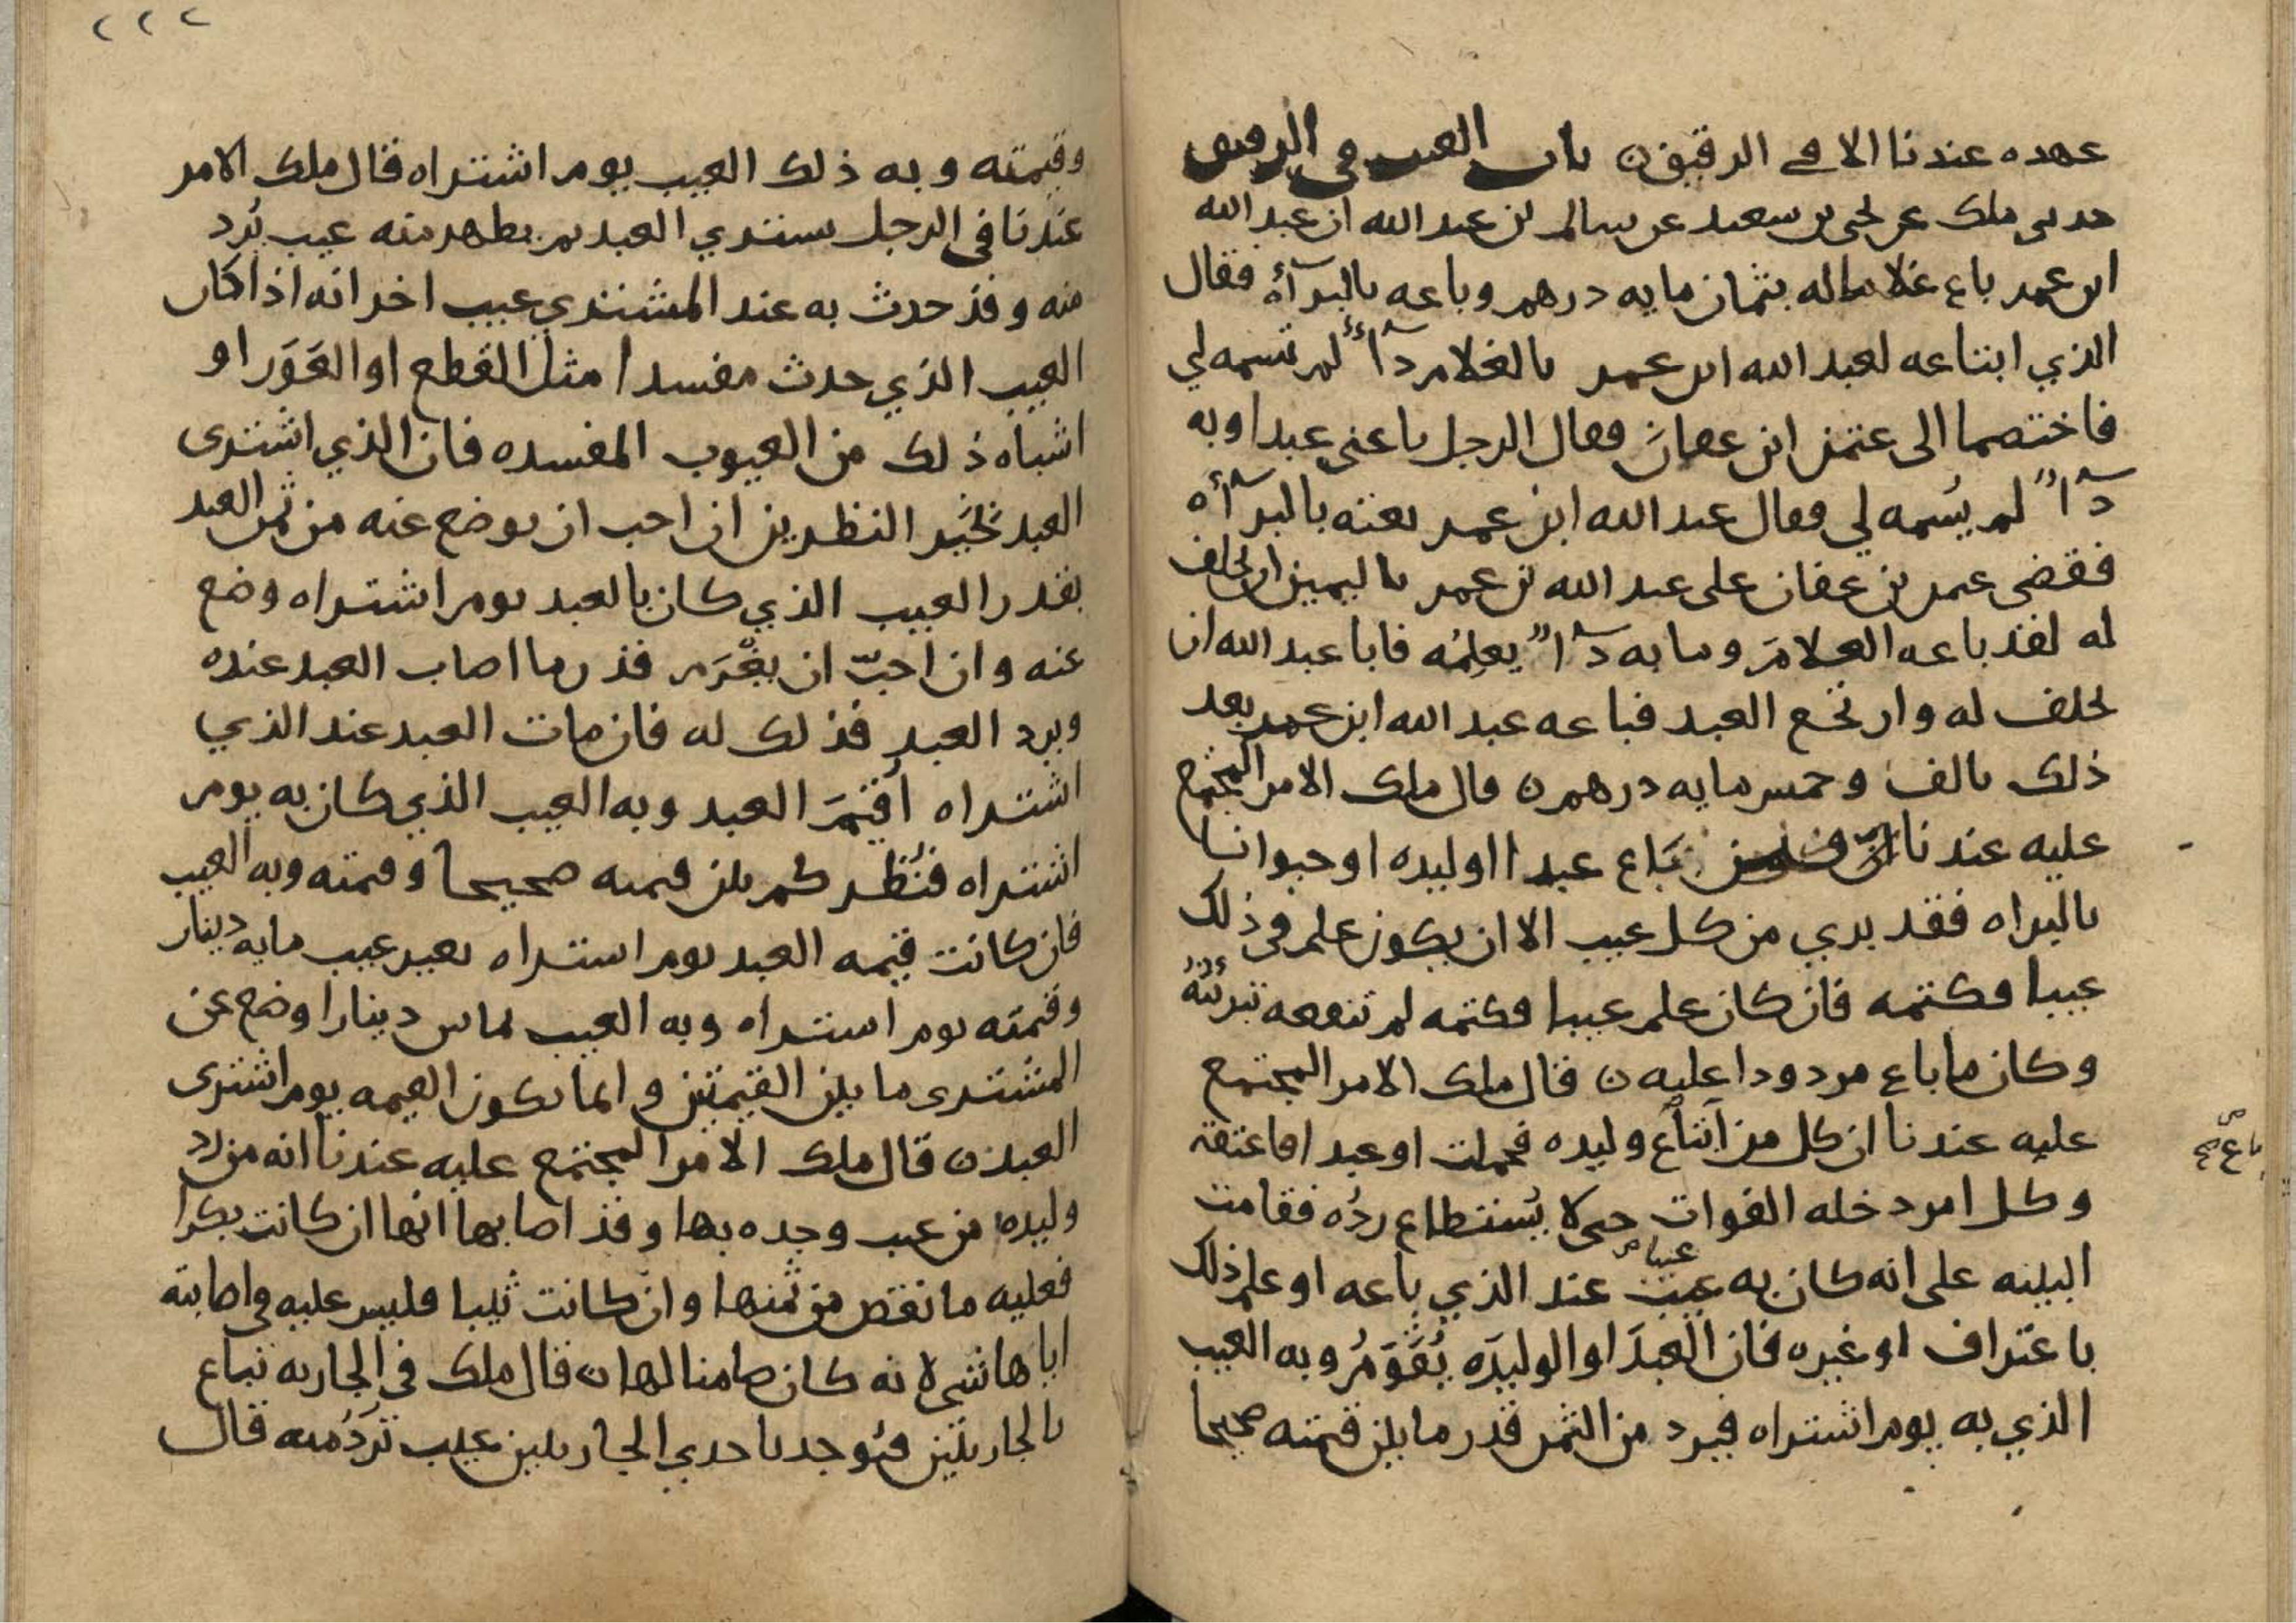 عهده عندنا الا في الرقيق ن باب العيب في الرقيق
حدثنى ملك عن يحيى بن سعيد عن سالم بن عبد الله ان عبد الله
ابن عمر باع غلاما له بثمان مايه درهم وباعه بالبرآأة فقال
الذي ابتاعه لعبد الله ابن عمر بالغلام دآءٌ لم تسمه لي
فاختصما الى عثمن ابن عفان فقال الرجل باعنى عبدا وبه
دآاٌ لم يُسمه لي فقال عبد الله ابن عمر بعته بالبرآأه
فقضى عمر بن عفان على عبد الله بن عمر باليمين ان يحلف
له لقد باعه الغلامَ وما به دآاٌ يعلمُه فابا عبد الله ان
يحلف له وارتجع العبد فباعه عبد الله ابن عمر بعد
ذلك بالف وخمس مايه درهم ن قال ملك الامر المجتمع
عليه عندنا انّ من باع عبدا او ليده او حيوانا
بالبراه فقد بري من كل عيب الا ان يكون علم في ذلك
عيبا فكتمه فان كان علم عيبا فكتمه لم تنفعه تبرئتُهُ
وكان ما باع مردودا عليه ن قال ملك الامر المجتمع
عليه عندنا ان كل من ابتاع وليده فحملت او عبد افاعتقه
باع صح
وكل امر دخله الفوات حتى لا يُستطاع ردُه فقامت
البينه على انه كان به عيب عند الذي باعه او علم ذلك
عيبا
باعتراف او غيره فان العبدَ او الوليدَه يُقَوَّمُ وبه العيب
الذي به يوم اشتراه فيرد من الثمن قدر ما بين قيمته صحيحا
٢٢٢
وقيمته وبه ذلك العيب يوم اشتراه قال ملك الامر
عندنا في الرجل يشتري العبد ثم يظهر منه عيب يُرد
منه وقد حدث به عند المشتري عيب اخر انه اذا كان
العيب الذي حدث مفسدا مثل القطع او العَوَر او
اشباه ذلك من العيوب المفسده فان الذي اشترى
العبد بخَيْر النظرين ان احب ان يوضع عنه من ثمن العبد
بقدر العيب الذي كان بالعبد يوم اشتراه وضع
عنه وان احبّ ان يغْرَم قدر ما اصاب العبد عنده
ويرد العبد فذلك له فان مات العبد عند الذي
اشتراه اُقيمَ العبد وبه العيب الذي كان به يوم
اشتراه فنُظر كم بين قيمته صحيحا وقيمته وبه العيب
فان كانت قيمه العبد يوم اشتراه بغير عيب مايه دينار
وقيمته يوم اشتراه وبه العيب ثمانين دينارا وضع عن
المشترى ما بين القيمتين وانما يكون القيمه يوم اشترى
العبد ن قال ملك الامر المجتمع عليه عندنا انه من رد
وليده من عيب وجده بها وقد اصابها انها ان كانت بكرا
فعليه ما نقص من ثمنها وان كانت ثيبا فليس عليه في اصابته
اياها شي لانه كان ضامنا لها ن قال ملك في الجاريه تباع
بالجاريتين فيُوجد باحدي الجاريتين عيب تُرَدُ منه قال